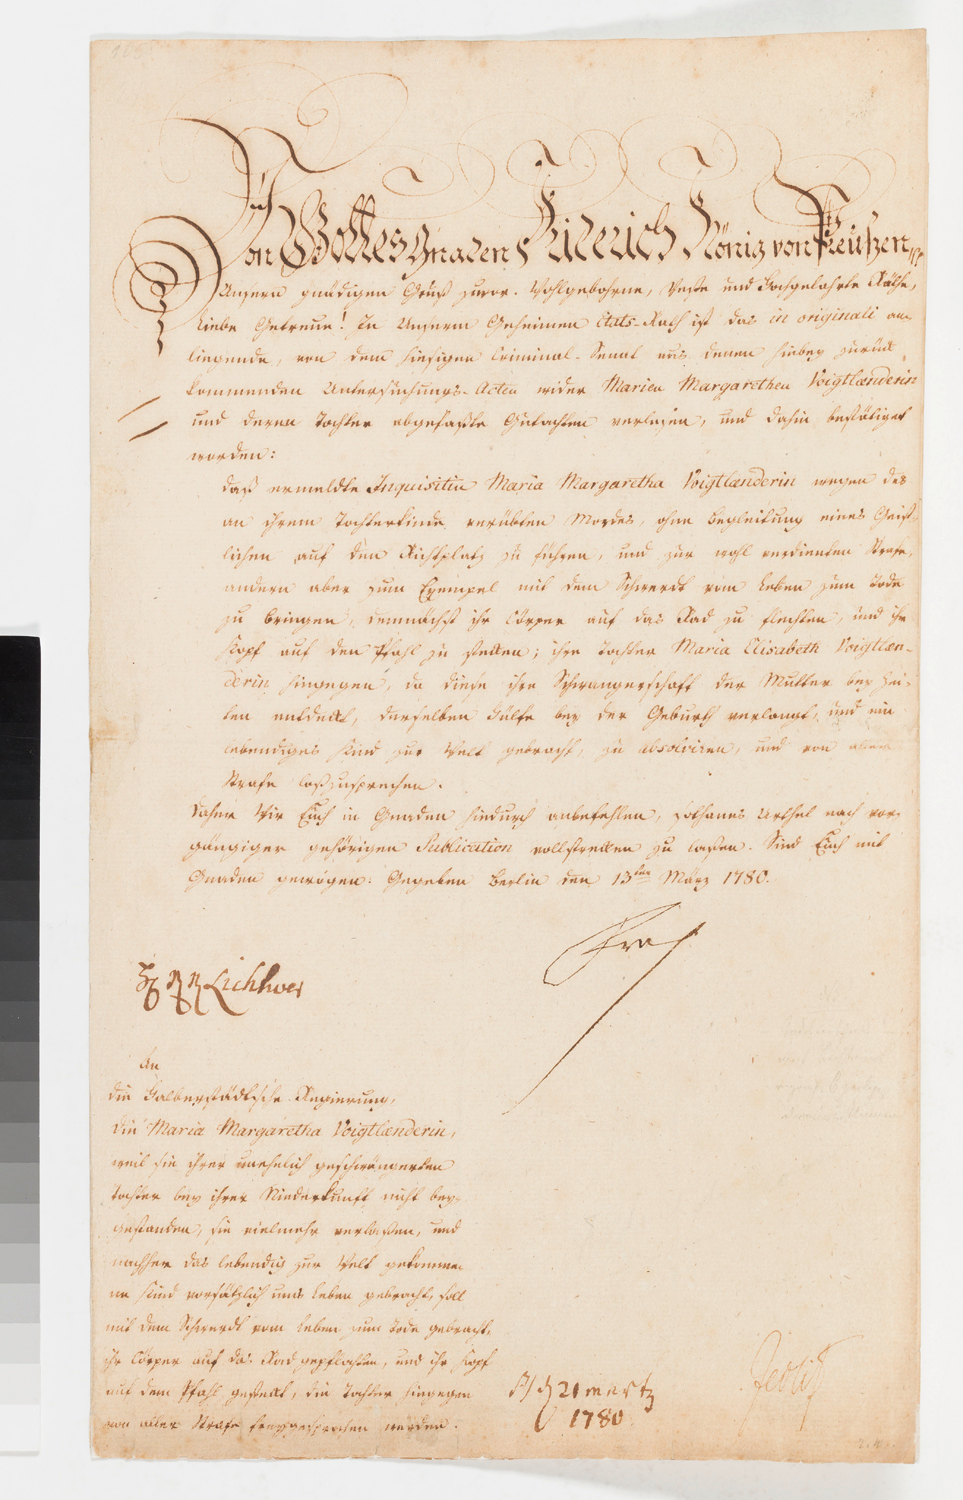 Von Gottes Gnaden Friderich König von Preußen
Unsern gnädigen Gruß zuvor. Wohlgebohrne, Veste und Hochgelahrte Räthe,
Liebe Getreue! In Unserm Geheimen Etats-Rath ist das in originali an
liegende, von dem hiesigen Criminal-Senat aus denen hiebey zurük
kommenden Untersuchungs-Acten wider Marien Margarethen Voigtlænderin
und deren Tochter abgefaßte Gutachten verlesen, und dahin bestätiget
worden:
daß ermeldte Inquisitin Maria Margaretha Voigtlænderin wegen des
an ihrem Tochterkinde verübten Mordes, ohne Begleitung eines Geist-
lichen auf den Richtplatz zu führen, und zur wohl verdienten Strafe,
andern aber zum Exempel mit dem Schwerdt vom Leben zum Tode
zu bringen, demnächst ihr Cörper auf das Rad zu flechten, und ihr
Kopf auf den Pfahl zu stekken; ihre Tochter Maria Elisabeth Voigtlæn-
derin hingegen, da diese ihre Schwangerschaft der Mutter bey Zei-
ten entdekt, derselben Hülfe bey der Geburth verlangt, und ein
lebendiges Kind zur Welt gebracht, zu absolviren, und von aller
Strafe loßzusprechen.
Daher Wir Euch in Gnaden hiedurch anbefehlen, sothanes Urthel nach vor-
gängiger gehöriger Publication vollstrekken zu laßen. Sind Euch mit
Gnaden gewogen. Gegeben Berlin den 13ten März 1780.
Frch
An
die Halberstädtsche Regierung,
die Maria Margaretha Voigtlænderin,
weil sie ihrer unehelich geschwängerten
Tochter bey ihrer Niederkunft nicht bey-
gestanden, sie vielmehr verlaßen, und
nachher das lebendig zur Welt gekomme
ne Kind vorsätzlich ums Leben gebracht, soll
mit dem Schwerdt vom Leben zum Tode gebracht,
ihr Cörper auf das Rad geflochten, und ihr Kopf
auf dem Pfahl gestekt, die Tochter hingegen
von aller Strafe freygesprochen werden.
21 mertz
1780